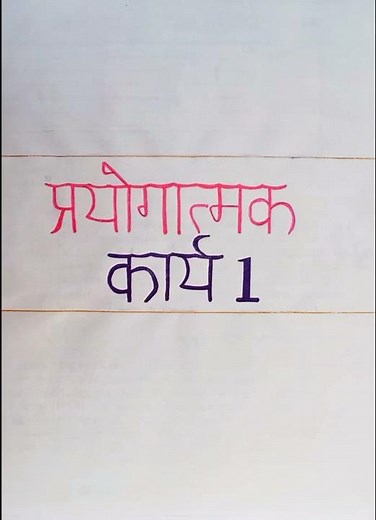 प्रयोगात्मक
कार्य 1